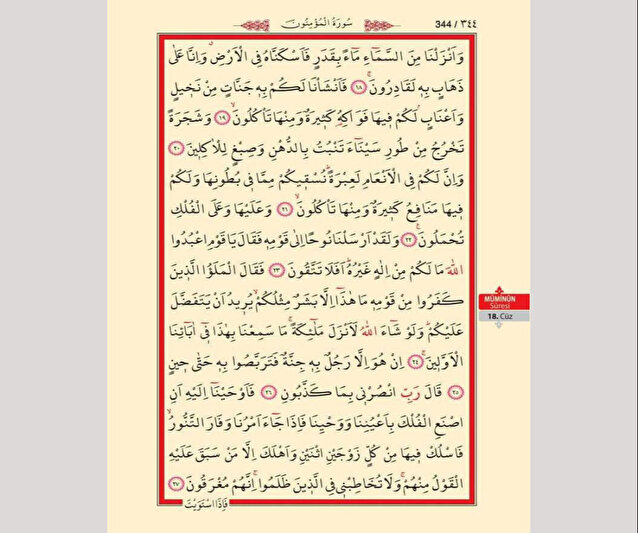 344 / ٣٤٤
سُورَةُ الْمُؤْمِنُونَ
وَاَنْزَلْنَا مِنَ السَّمَٓاءِ مَٓاءً بِقَدَرٍ فَاَسْكَنَّاهُ فِي الْاَرْضِۗ وَاِنَّا عَلٰى
ذَهَابٍ بِه۪ لَقَادِرُونَۚ ﴿١٨﴾ فَاَنْشَأْنَا لَكُمْ بِه۪ جَنَّاتٍ مِنْ نَخ۪يلٍ
وَاَعْنَابٍۢ لَكُمْ ف۪يهَا فَوَاكِهُ كَث۪يرَةٌ وَمِنْهَا تَأْكُلُونَۙ ﴿١٩﴾ وَشَجَرَةً
تَخْرُجُ مِنْ طُورِ سَيْنَٓاءَ تَنْبُتُ بِالدُّهْنِ وَصِبْغٍ لِلْاٰكِل۪ينَ ﴿٢٠﴾
وَاِنَّ لَكُمْ فِي الْاَنْعَامِ لَعِبْرَةًۜ نُسْق۪يكُمْ مِمَّا ف۪ي بُطُونِهَا وَلَكُمْ
ف۪يهَا مَنَافِعُ كَث۪يرَةٌ وَمِنْهَا تَأْكُلُونَۙ ﴿٢١﴾ وَعَلَيْهَا وَعَلَى الْفُلْكِ
تُحْمَلُونَ۟ ﴿٢٢﴾ وَلَقَدْ اَرْسَلْنَا نُوحًا اِلٰى قَوْمِه۪ فَقَالَ يَا قَوْمِ اعْبُدُوا
اللّٰهَ مَا لَكُمْ مِنْ اِلٰهٍ غَيْرُهُۜ اَفَلَا تَتَّقُونَ ﴿٢٣﴾ فَقَالَ الْمَلَؤُا الَّذ۪ينَ
كَفَرُوا مِنْ قَوْمِه۪ مَا هٰذَٓا اِلَّا بَشَرٌ مِثْلُكُمْۙ يُر۪يدُ اَنْ يَتَفَضَّلَ
عَلَيْكُمْۜ وَلَوْ شَٓاءَ اللّٰهُ لَاَنْزَلَ مَلٰٓئِكَةًۚ مَا سَمِعْنَا بِهٰذَا ف۪ٓي اٰبَٓائِنَا
الْاَوَّل۪ينَۚ ﴿٢٤﴾ اِنْ هُوَ اِلَّا رَجُلٌ بِه۪ جِنَّةٌ فَتَرَبَّصُوا بِه۪ حَتّٰى ح۪ينٍ
﴿٢٥﴾ قَالَ رَبِّ انْصُرْن۪ي بِمَا كَذَّبُونِ ﴿٢٦﴾ فَاَوْحَيْنَٓا اِلَيْهِ اَنِ
اصْنَعِ الْفُلْكَ بِاَعْيُنِنَا وَوَحْيِنَا فَاِذَا جَٓاءَ اَمْرُنَا وَفَارَ التَّنُّورُۙ
فَاسْلُكْ ف۪يهَا مِنْ كُلٍّ زَوْجَيْنِ اثْنَيْنِ وَاَهْلَكَ اِلَّا مَنْ سَبَقَ عَلَيْهِ
الْقَوْلُ مِنْهُمْۚ وَلَا تُخَاطِبْن۪ي فِي الَّذ۪ينَ ظَلَمُواۚ اِنَّهُمْ مُغْرَقُونَ ﴿٢٧﴾
فَاِذَا اسْتَوَيْتَ
MÜMİNÛN
Sûresi
18. Cüz